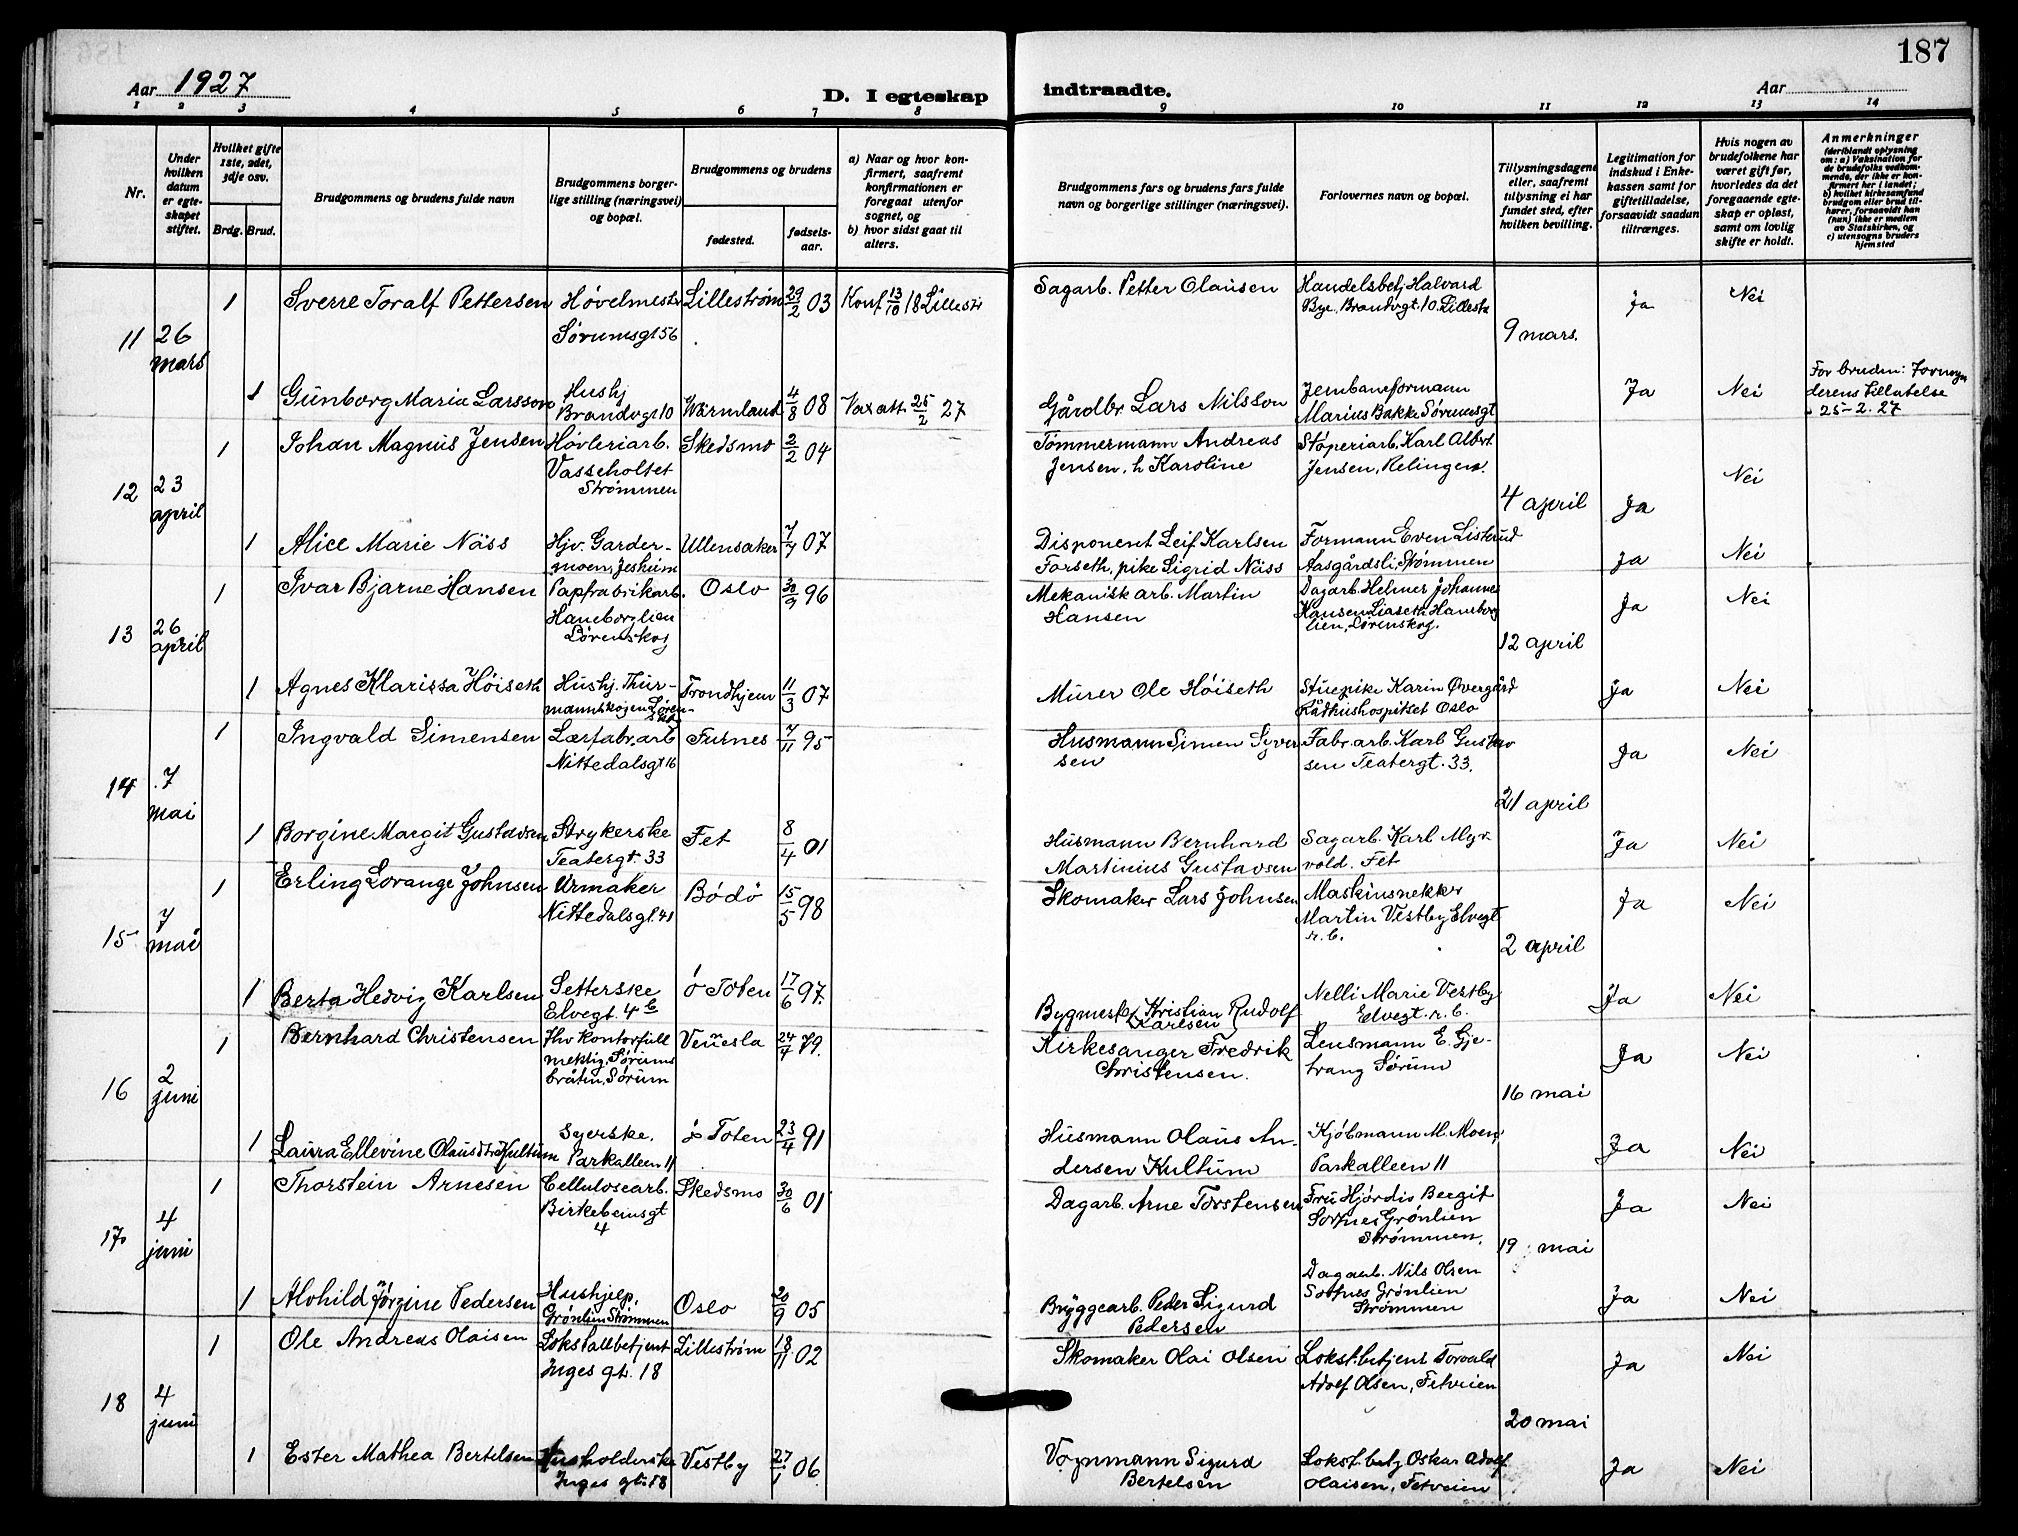 187
Aar 1927
D. I egteskap
indtraadte.
Aar
1 2 3 4 5 6 7 8 9 10 11 12 13 14
Nr.
Under hvilken datum er egteskapet stiftet.
Hvilket gifte 1ste, 2det, 3dje osv.
Brdg. Brud.
Brudgommens og brudens fulde navn
Brudgommens borgerlige stilling (næringsvei) og bopæl.
Brudgommens og brudens
fødested.
fødselsaar.
a) Naar og hvor konfirmert, saafremt konfirmationen er foregaat utenfor sognet, og
b) hvor sidst gaat til alters.
Brudgommens fars og brudens fars fulde navn og borgerlige stillinger (næringsvei).
Forlovernes navn og bopæl.
Tillysningsdagene eller, saafremt tillysning ei har fundet sted, efter hvilken bevilling.
Legitimation for indskud i Enkekassen samt for giftetilladelse, forsaavidt saadan tiltrænges.
Hvis nogen av brudefolkene har været gift før, hvorledes da det foregaaende egteskap er opløst, samt om lovlig skifte er holdt.
Anmerkninger (deriblandt oplysning om: a) Vaksination for de brudefolks vedkommende, der ikke er konfirmert her i landet; b) hvilket kirkesamfund brudgom eller brud tilhører, forsaavidt han (hun) ikke er medlem av Statskirken, og c) utensogns bruders hjemsted
11 26 mars
1 Sverre Toralf Pettersen Høvelmestr Sørumsgt 56 Lillestrøm 29/2 03 Konf 13/10 18 Lillestr Sagarb. Petter Olausen Handelsbetj Halvard Bye, Brandvgt. 10. Lillestr 9 mars. Ja Nei
1 Gunborg Maria Larsson Hushj Brandvgt 10 Wärmland 4/8 08 Vax att. 25/2 27 Gårdbr Lars Nilsson Jernbaneformann Marius Bakke Sørumsgt Ja Nei For bruden: Formynderens tillatelse 25-2.27
12 23 april
1 Johan Magnus Jensen Høvleriarb. Vasseholtet Strømmen Skedsmo 2/2 04 Tømmermann Andreas Jensen, h Karoline Støperiarb. Karl Albert Jensen, Relingen. 4 april Ja Nei
1 Alice Marie Näss Hjv. Gardermoen, Jesheim Ullensaker 7/7 07 Disponent Leif Karlsen Forseth, pike Sigrid Näss Formann Even Listerud Aasgårdsli, Strømmen Ja Nei
13 26 april
1 Ivar Bjarne Hansen Papfabrikarb. Haneborglien Lørenskog Oslo 30/9 96 Mekanisk arb. Martin Hansen Dagarb. Helmer Johannes Hansen Liaseth Haneborglien, Lørenskog. 12 april Ja Nei
1 Agnes Klarissa Høiseth Hushj. Thurmannskogen Lørenskog Trondhjem 11/3 07 Murer Ole Høiseth Stuepike Karin Øvergård Rådhushospitset Oslo Ja Nei
14 7 mai
1 Ingvald Simensen Lærfabr.arb Nittedalsgt 16 Furnes 7/11 95 Husmann Simen Syversen Fabr.arb. Karl Gustavsen Teatergt. 33. 21 april Ja Nei
1 Borgine Margit Gustavsen Strykerske Teatergt. 33 Fet 8/4 01 Husmann Bernhard Martinius Gustavsen Sagarb. Karl Myrvold. Fet Ja Nei
15 7 mai
1 Erling Lorange Johnsen Urmaker Nittedalsgt. 41 Bodö 15/5 98 Skomaker Lars Johnsen Maskinsnekker Martin Vestby Elvegt r.b. 2 april Ja Nei
1 Berta Hedvig Karlsen Setterske Elvegt. 4 b ö Toten 17/6 97. Bygmestr Kristian Rudolf Karlsen Nelli Marie Vestby Elvegt. r.b. Ja Nei
16 2 juni
1 Bernhard Christensen Fhv kontorfullmektig, Sørumsbråten, Sørum Vennesla 24/4 79. Kirkesanger Fredrik Christensen. Lensmann E. Gjetrang Sørum 16 mai Ja Nei
1 Laura Ellevine Olausdtr Kultum Syerske. Parkalleen 11 ö Toten 23/4 91 Husmann Olaus Andersen Kultum Kjøbmann M. Moen, Parkalleen 11 Ja Nei
17 4 juni
1 Thorstein Arnesen Cellulosearb. Birkebeinsgt 4 Skedsmo 30/6 01 Dagarb. Arne Torstensen Fru Hjørdis Bergit Sotnes Grønlien Strømmen. 19 mai Ja Nei
1 Alvhild Jørgine Pedersen Hushjelp. Grønlien Strømmen Oslo 20/9 05 Bryggearb. Peder Sigurd Pedersen Dagarb. Nils Olsen Sotnes Grønlien Strømmen Ja Nei
18 4 juni
1 Ole Andreas Olaisen Lokstallbetjent Inges gt. 18 Lillestrøm 18/11 02 Skomaker Olai Olsen Lokst.betjent Torvald Adolf Olsen, Fetveien 20 mai Ja Nei
1 Ester Mathea Bertelsen Husholderske Inges gt. 18 Vestby 27/1 06 Vognmann Sigurd Bertelsen Lokst. betj Oskar Adolf Olaisen, Fetveien Ja Nei